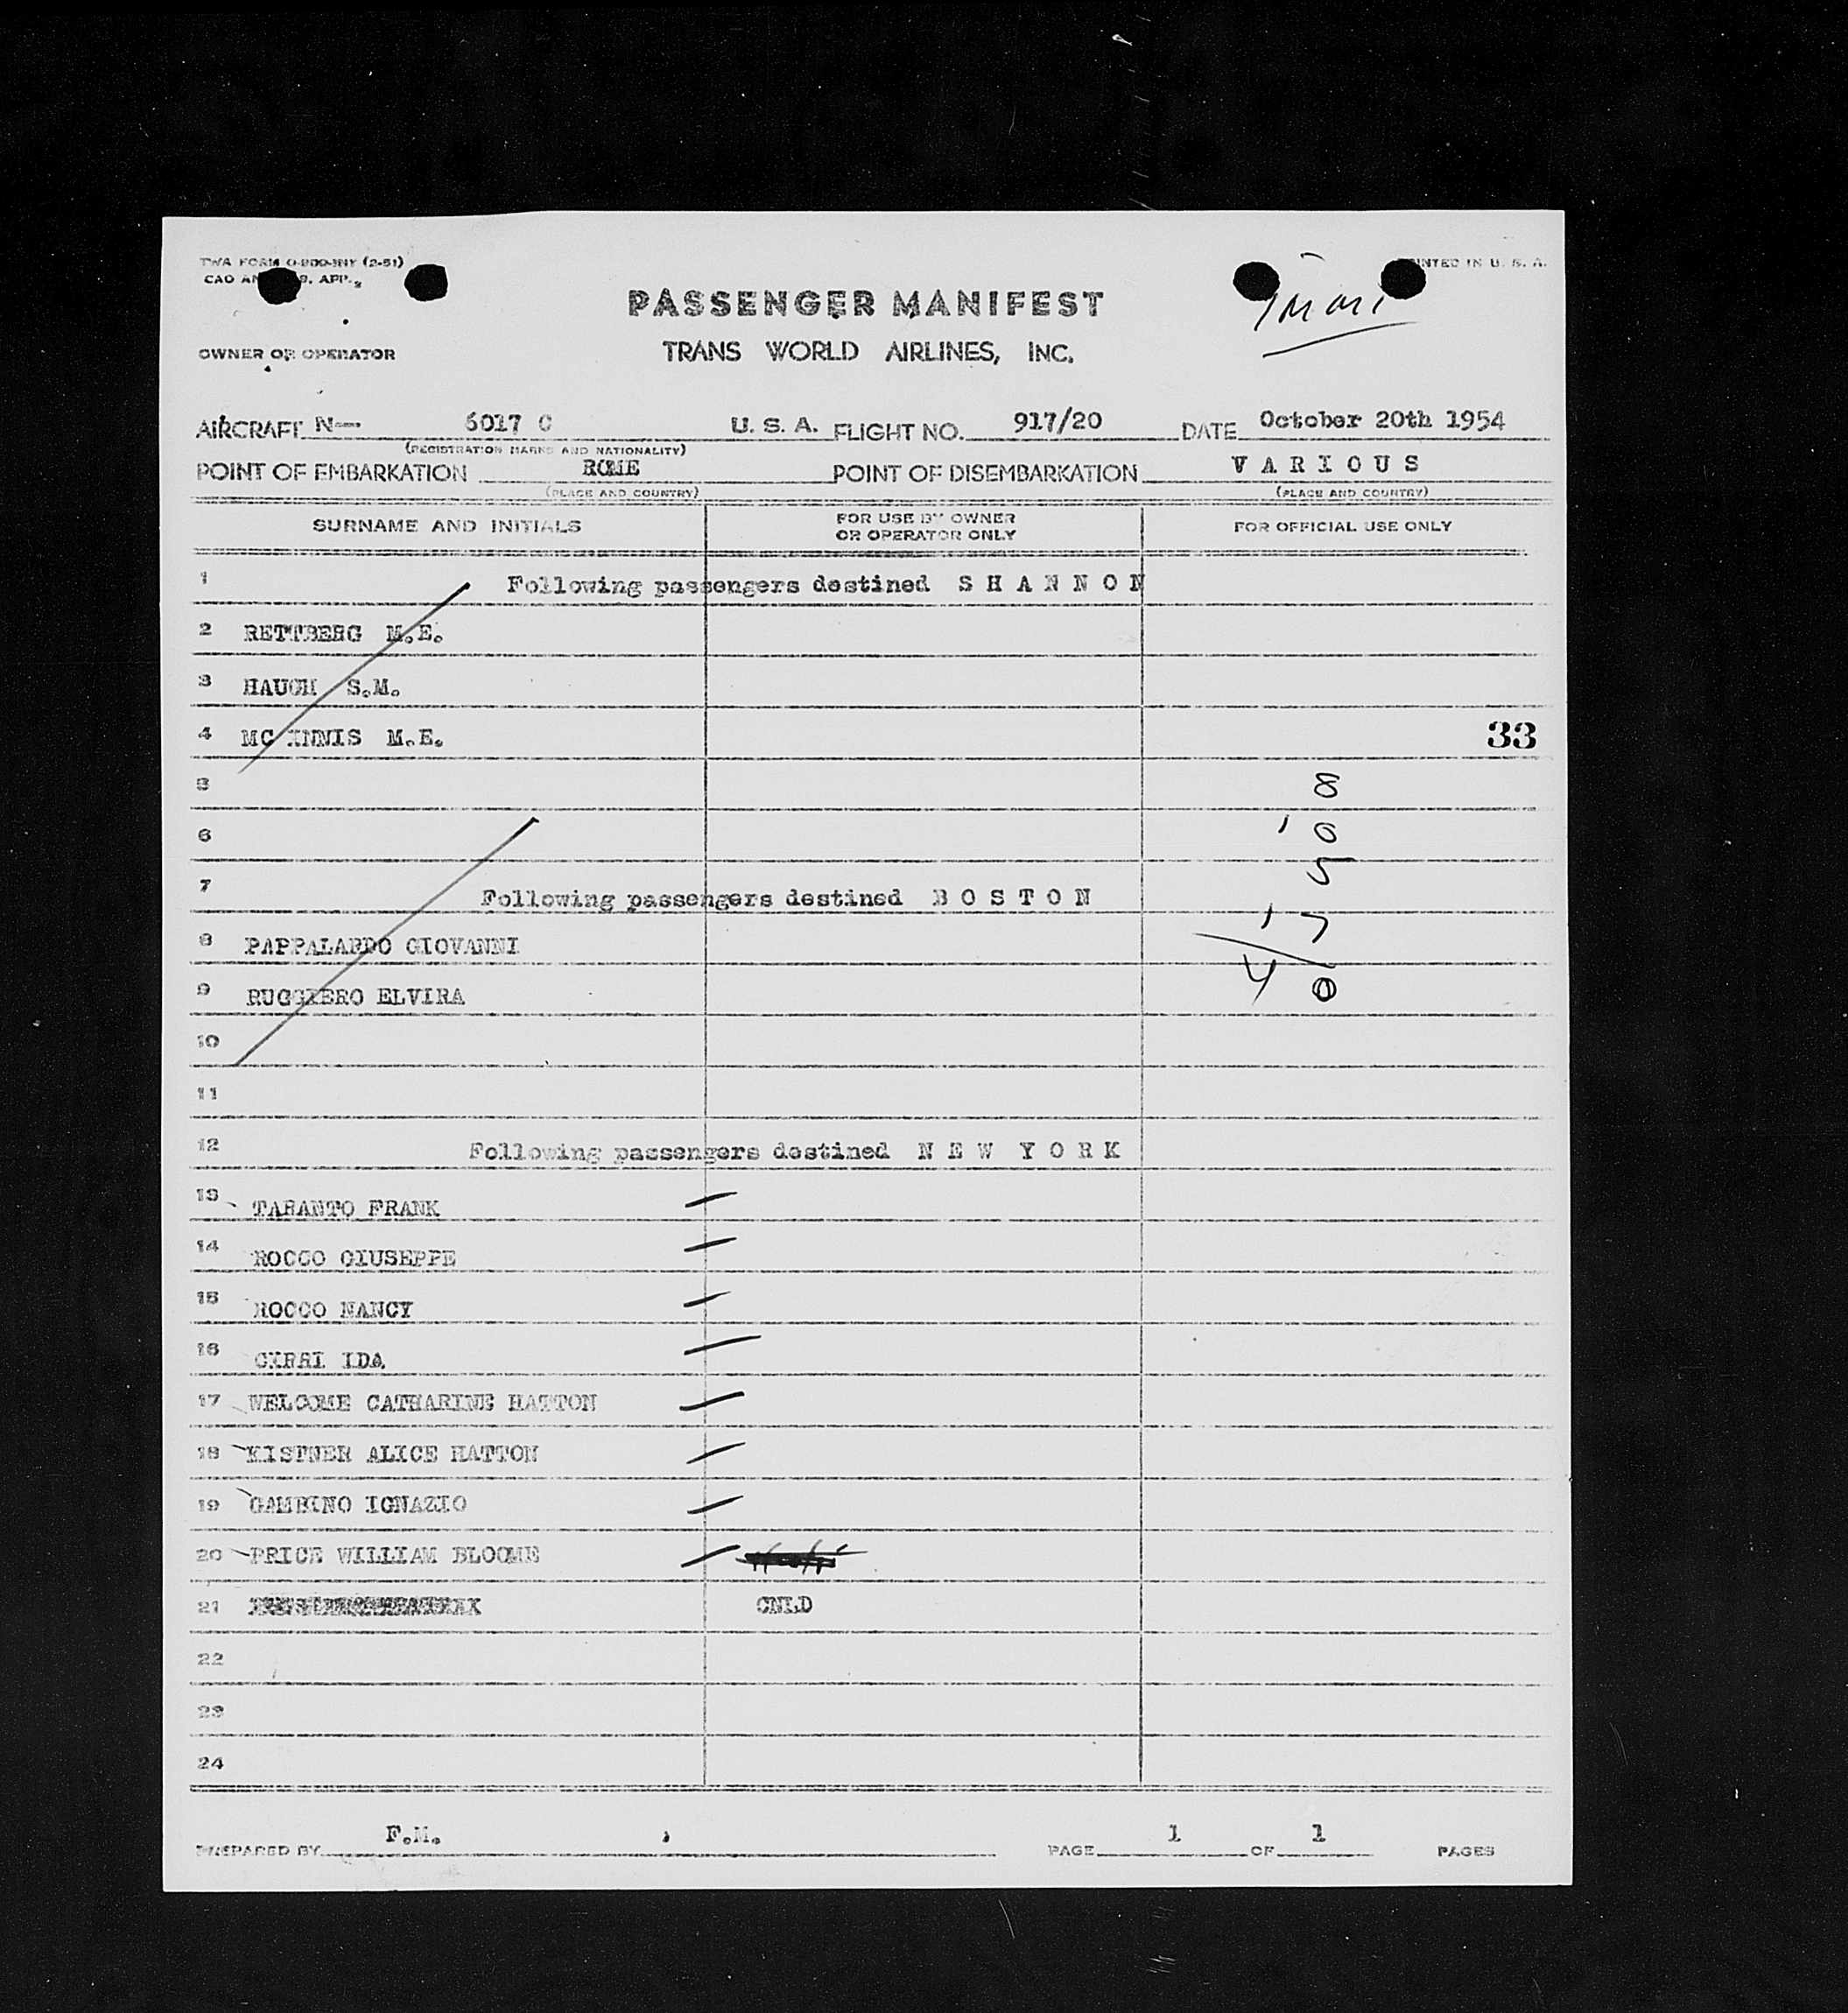 TWA FORM
CAO AN
PRINTED IN U. S. A.
PASSENGER MANIFEST
OWNER OR OPERATOR TRANS WORLD AIRLINES, INC.
AIRCRAFT N-- 6017 C U. S. A. FLIGHT NO. 917/20 DATE October 20th 1954
(REGISTRATION MARKS AND NATIONALITY)
POINT OF EMBARKATION ROME POINT OF DISEMBARKATION V A R I O U S
(PLACE AND COUNTRY) (PLACE AND COUNTRY)
SURNAME AND INITIALS FOR USE BY OWNER OR OPERATOR ONLY FOR OFFICIAL USE ONLY
1 Following passengers destined S H A N N O N
2 RETTBERG M.E.
3 HAUGH S.M.
4 MC INNIS M.E. 33
5 8
6 10
7 Following passengers destined B O S T O N 5
8 PAPPALARDO GIOVANNI 17
9 RUGGIERO ELVIRA 40
10
11
12 Following passengers destined N E W Y O R K
13 TARANTO FRANK
14 ROCCO GIUSEPPE
15 ROCCO NANCY
16 IDA
17 WELCOME CATHARINE HATTON
18 ALICE HATTON
19 GAMBINO IGNAZIO
20 PRICE WILLIAM BLOOME
21 CNLD
22
23
24
PREPARED BY F.M. PAGE 1 OF 1 PAGES